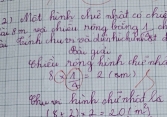 2) Một hình chữ nhật có chiều
dài 8m và chiều rộng bằng 1/4 ch
dài. Tính chu vi và diện tích hình đó
Bài giải
Chiều rộng hình chữ nhật
8 x 1/4 = 2 (m)
Chu vi hình chữ nhật là
(8 + 2) x 2 = 20 (m